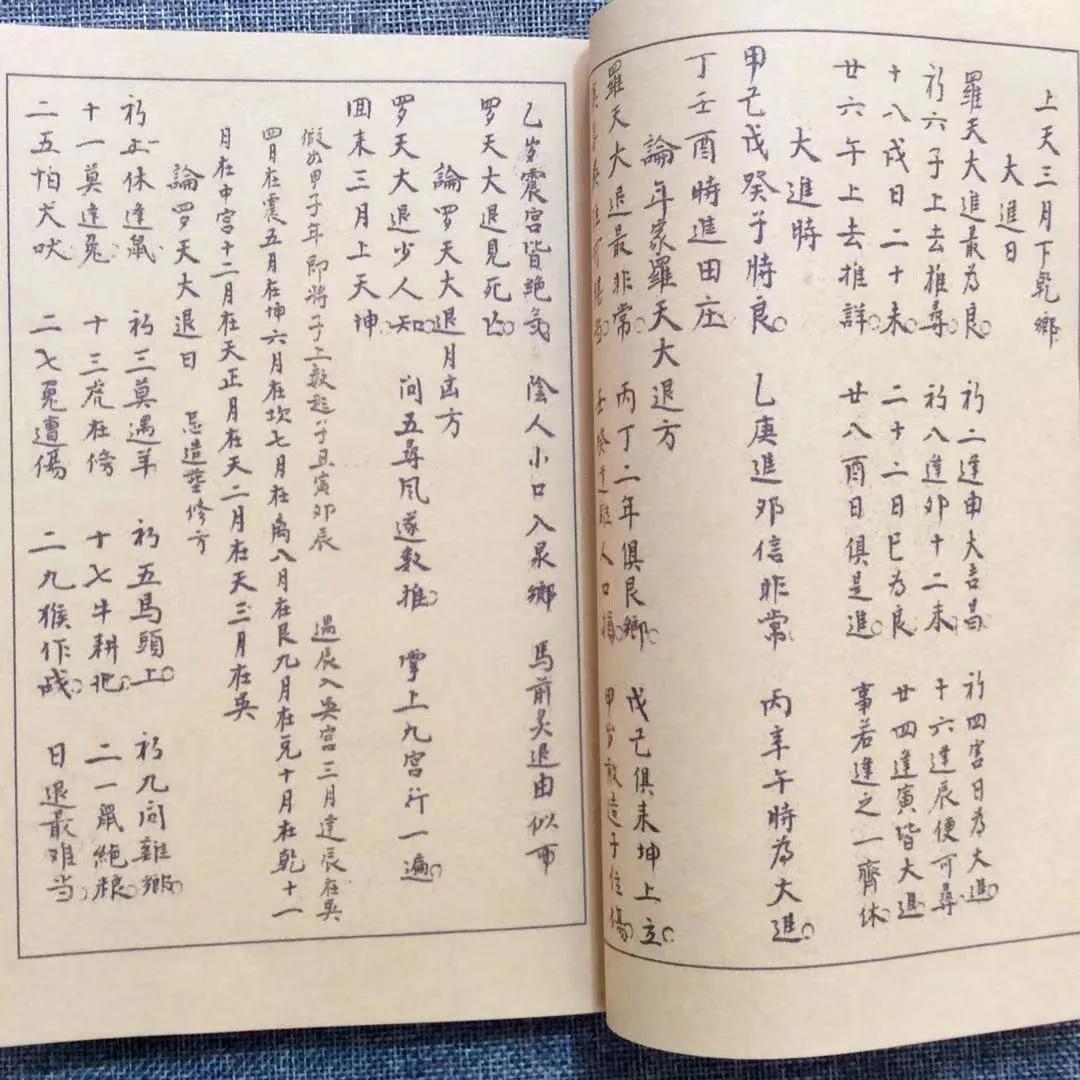 上天三月下乾鄉
大進日
羅天大進最為良 初二逢申大吉昌 初四宮日為大進
初六子上去推尋 初八逢卯十二未 十六逢辰便可尋
十八戌日二十未 二十二日巳為良 廿四逢寅皆大進
廿六午上去推詳 廿八酉日俱是進 事若逢之一齊休
大進時
甲己戊癸子時良 乙庚進卯信非常 丙辛午時為大進
丁壬酉時進田庄
論年家羅天大退方
羅天大退最非常 丙丁二年俱艮鄉 戊己俱来坤上立
壬癸逢 人口損 甲岁敢造子位傷
乙岁震宫皆绝气 陰人小口入泉鄉 馬前炙退由似可
罗天大退見死亡
論罗天大退月崮方
罗天大退少人知 问五尋風遂數推 掌上九宮行一遍
囬来三月上天坤
假如甲子年即將子上数起子丑寅卯辰 遇辰入奂宫三月逢辰在奂
四月在震五月在坤六月在坎七月在离八月在艮九月在兑十月在乾十一
月在中宮十二月在天正月在天二月在天三月在奂
論罗天大退日 忌造塟修方
初一休逢鼠 初三莫遇羊 初五馬頭上 初九问雞鄉
十一莫逢兔 十三虎在傍 十七牛耕地 二一鼠绝粮
二五怕犬吠 二七兎遭傷 二九猴作战 日退最难当